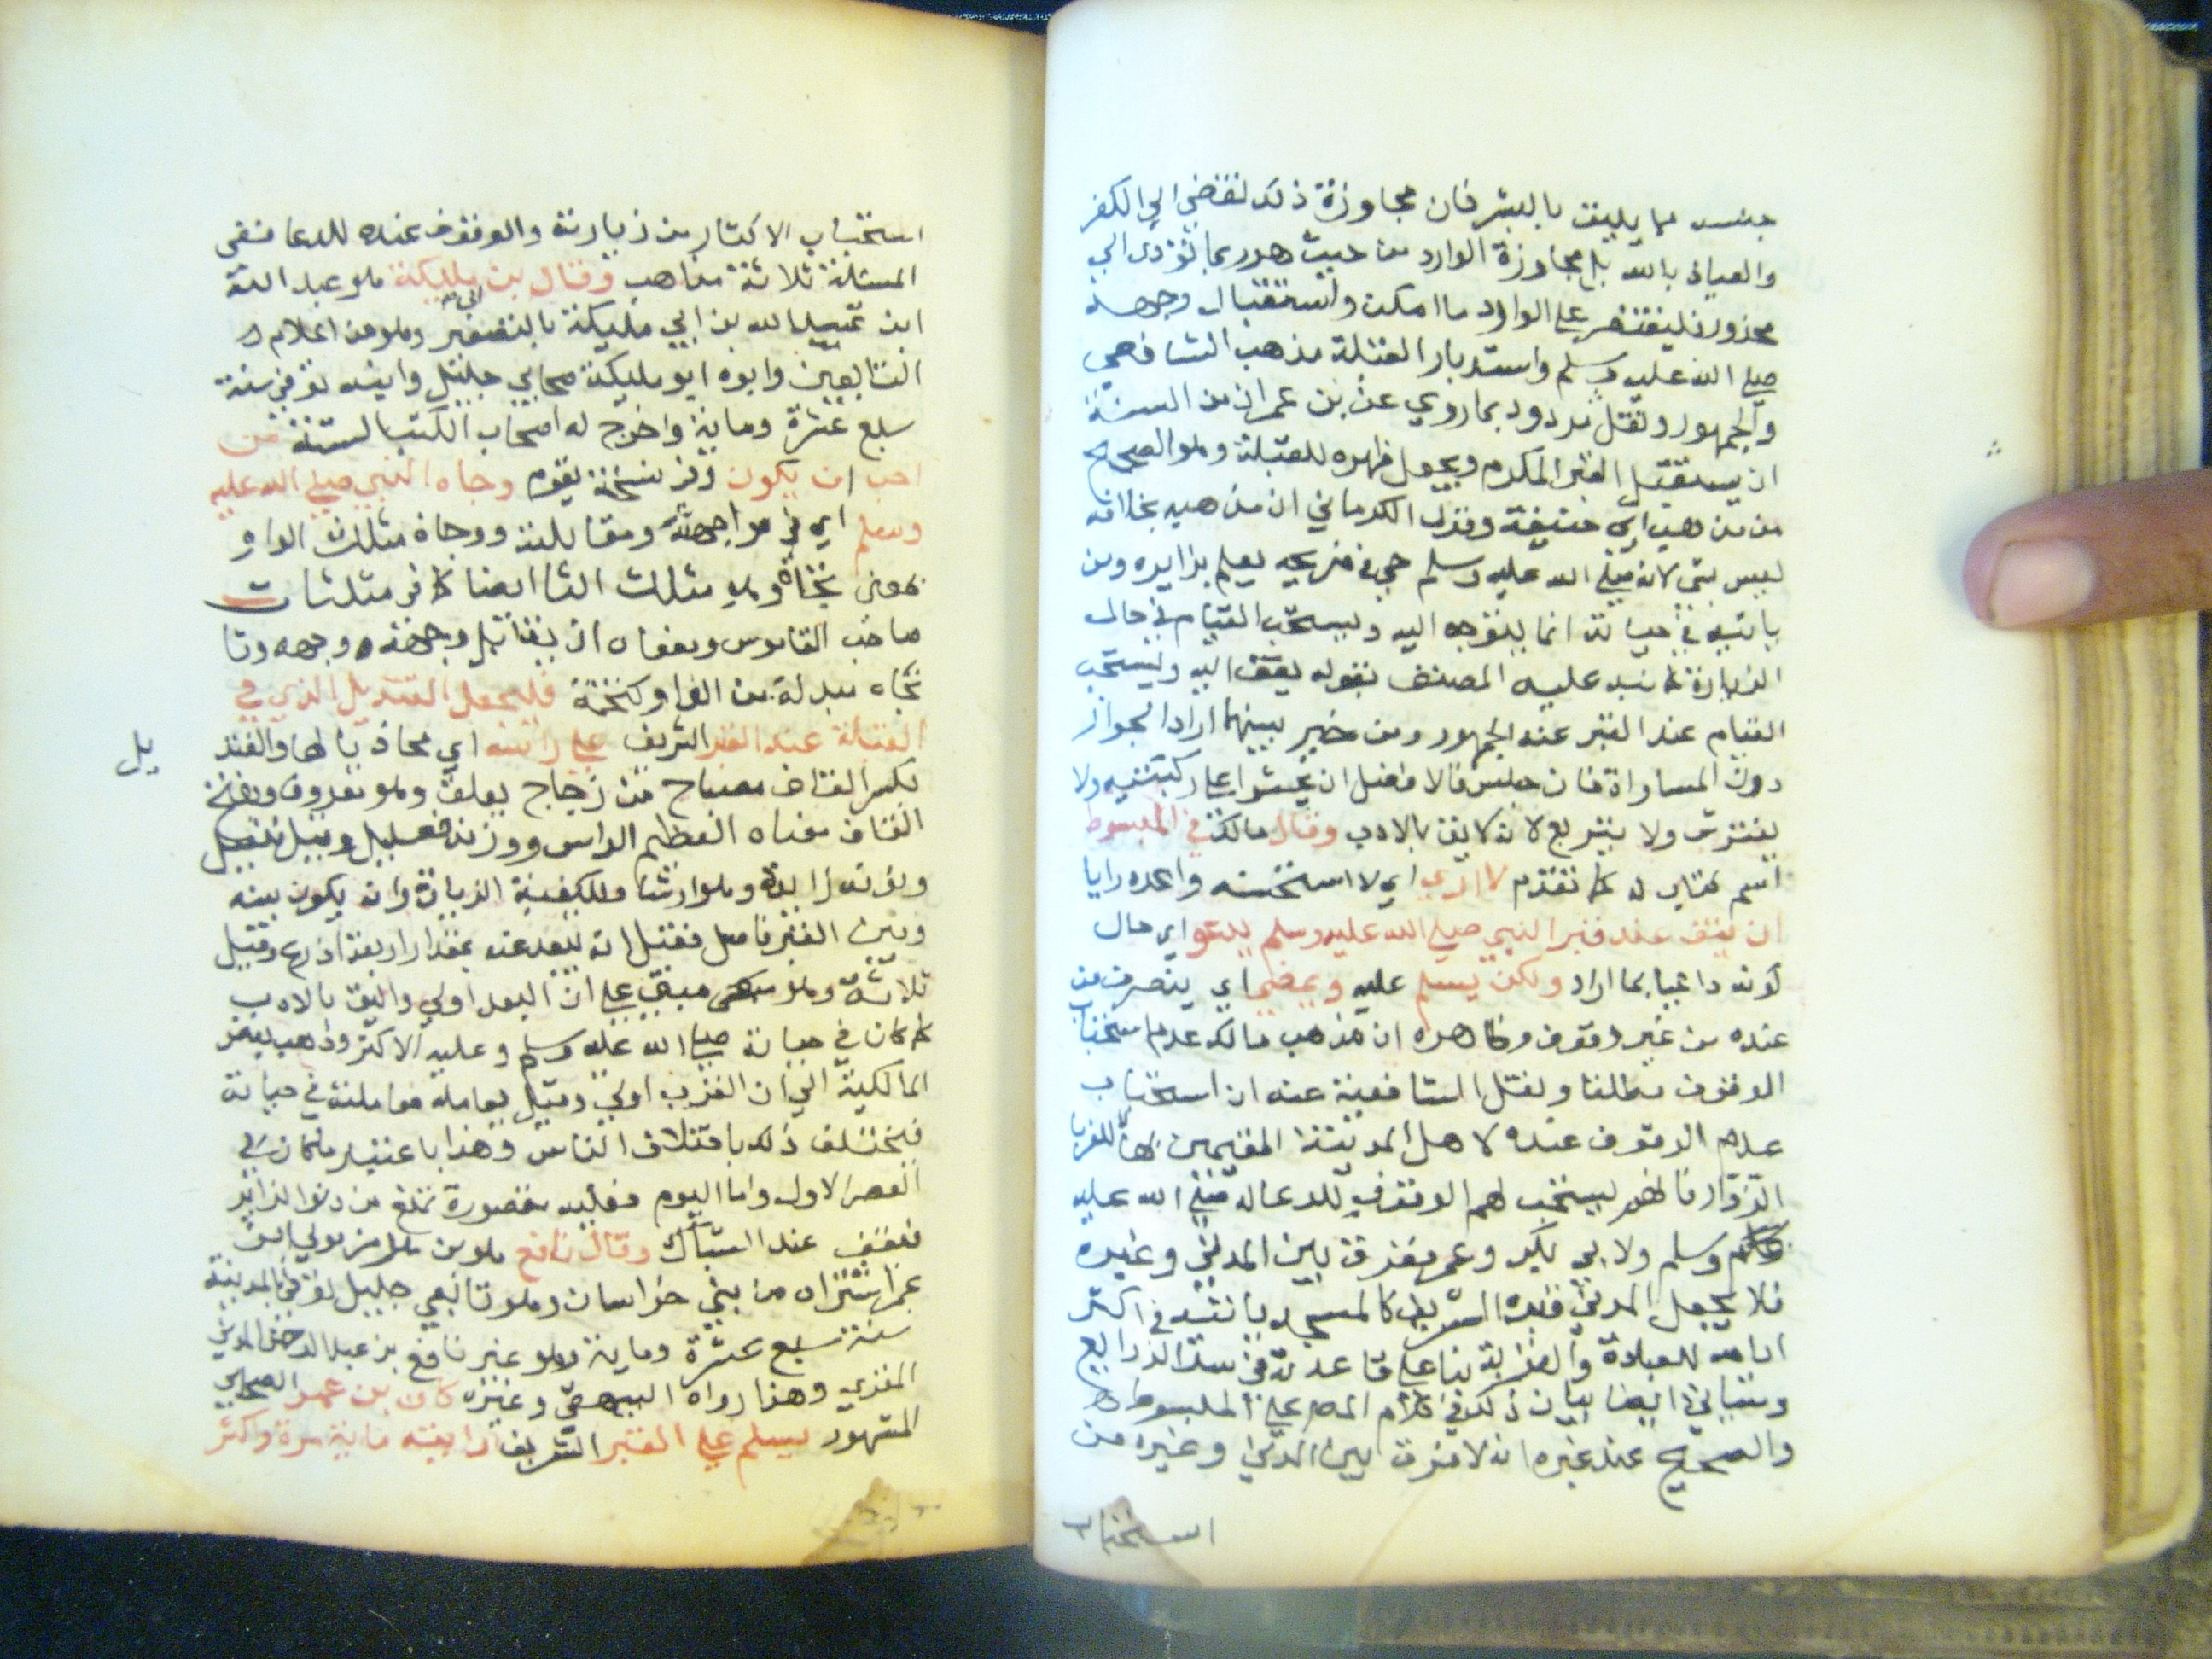 جنسه مما يليق بالبشر فان مجاوزة ذلك تفضي الي الكفر
والعياذ بالله بل مجاوزة الوارد من حيث هو ربما تؤدي الي
محذور فليقتصر علي الوارد ما امكن واستقبال وجهه
صلي الله عليه وسلم واستدبار القبلة مذهب الشافعي
والجمهور ونقل مردود بما روي عن بن عمر ان من السنة
ان يستقبل القبر المكرم ويجعل ظهره للقبلة وهو الصحيح
من مذهب ابي حنيفة وقول الكرماني ان مذهبه بخلافه
ليس بشي لانه صلي الله عليه وسلم حي في ضريحه يعلم بزايره ومن
ياتيه في حياته انما يتوجه اليه ويستحب القيام في حال
الزيارة كما نبه عليه المصنف بقوله يقف اليه ويستحب
القيام عند القبر عند الجمهور ومن خير بينهما اراد الجواز
دون المساواة فان جلس فالافضل ان يجثوا علي ركبتيه ولا
يفترش ولا يتربع لانه لايق بالادب وقال مالك في المبسوط
اسم كتاب له كما تقدم لا اري اي لا استحسنه واعده رايا
ان يقف عند قبر النبي صلي الله عليه وسلم يدعو اي حال
كونه داعيا بما اراد ولكن يسلم عليه ويمضي اي ينصرف من
عنده من غير وقوف وظاهره ان مذهب مالك عدم استحباب
الوقوف مطلقا ونقل الشافعية عنه ان استحباب
عدم الوقوف عنده لاهل المدينة المقيمين بها
الزوار فانهم يستحب لهم الوقوف للدعا له صلي الله عليه
وسلم ولابي بكر وعمر ففرق بين المدني وغيره
فلا يجعل المدني قبره الشريف كالمسجد ياتيه في اكثر
ايامه للعبادة والقربة بنا علي قاعدته في سد الذرايع
وسياتي ايضا بيان ذلك في كلام المص علي المبسوط
والصحيح عند غيره انه لا فرق بين المدني وغيره من
استحباب
استحباب الاكثار من زيارته والوقوف عنده للدعا ففي
المسئلة ثلاثة مذاهب وقال بن مليكة هو عبد الله
ابي
ابن عبيد الله بن ابي مليكة بالتصغير وهو من اعلام
التابعين وابوه ابو مليكة صحابي جليل وابنه توفي سنة
سبع عشرة وماية واخرج له اصحاب الكتب الستة من
احب ان يكون وفي نسخة يقوم وجاه النبي صلي الله عليه
وسلم اي في مواجهته ومقابلته ووجاه مثلث الواو
بمعني تجاه وهو مثلث التا ايضا كما في مثلثات
صاحب القاموس ومعناه ان يقابل وجهه وجهه وتا
تجاه مبدلة من الواو كتخمة فليجعل القنديل الذي في
القبلة عند القبر الشريف علي راسه اي محاذيا لها والقنديل
بكسر القاف مصباح من زجاج يعلق وهو معروف وبفتح
القاف معناه العظيم الراس ووزنه فعليل وقيل فنعيل
ونونه زايدة وهو ارشاد لكيفية الزيارة وان يكون بينه
وبين القبر فاصل فقيل انه يبعد عنه بمقدار اربعة اذرع وقيل
ثلاثة وهو مبني علي ان البعد اولي واليق بالادب
كما كان في حياته صلي الله عليه وسلم وعليه الاكثر وذهب بعض
المالكية الي ان القرب اولي وقيل يعامله معاملته في حياته
فيختلف ذلك باختلاف الناس وهذا باعتبار ما كان في
العصر الاول واما اليوم فعليه مقصورة تمنع من دنوا الزاير
فيقف عند الشباك وقال نافع هو بن هرمز مولي ابن
عمر اشتراه من سبي خراسان وهو تابعي جليل توفي بالمدينة
سنة سبع عشرة وماية وهو غير نافع بن عبد الرحمن المدني
المقري وهذا رواه البيهقي وغيره كان بن عمر الصحابي
المشهور يسلم علي القبر الشريف رايته ماية مرة واكثر